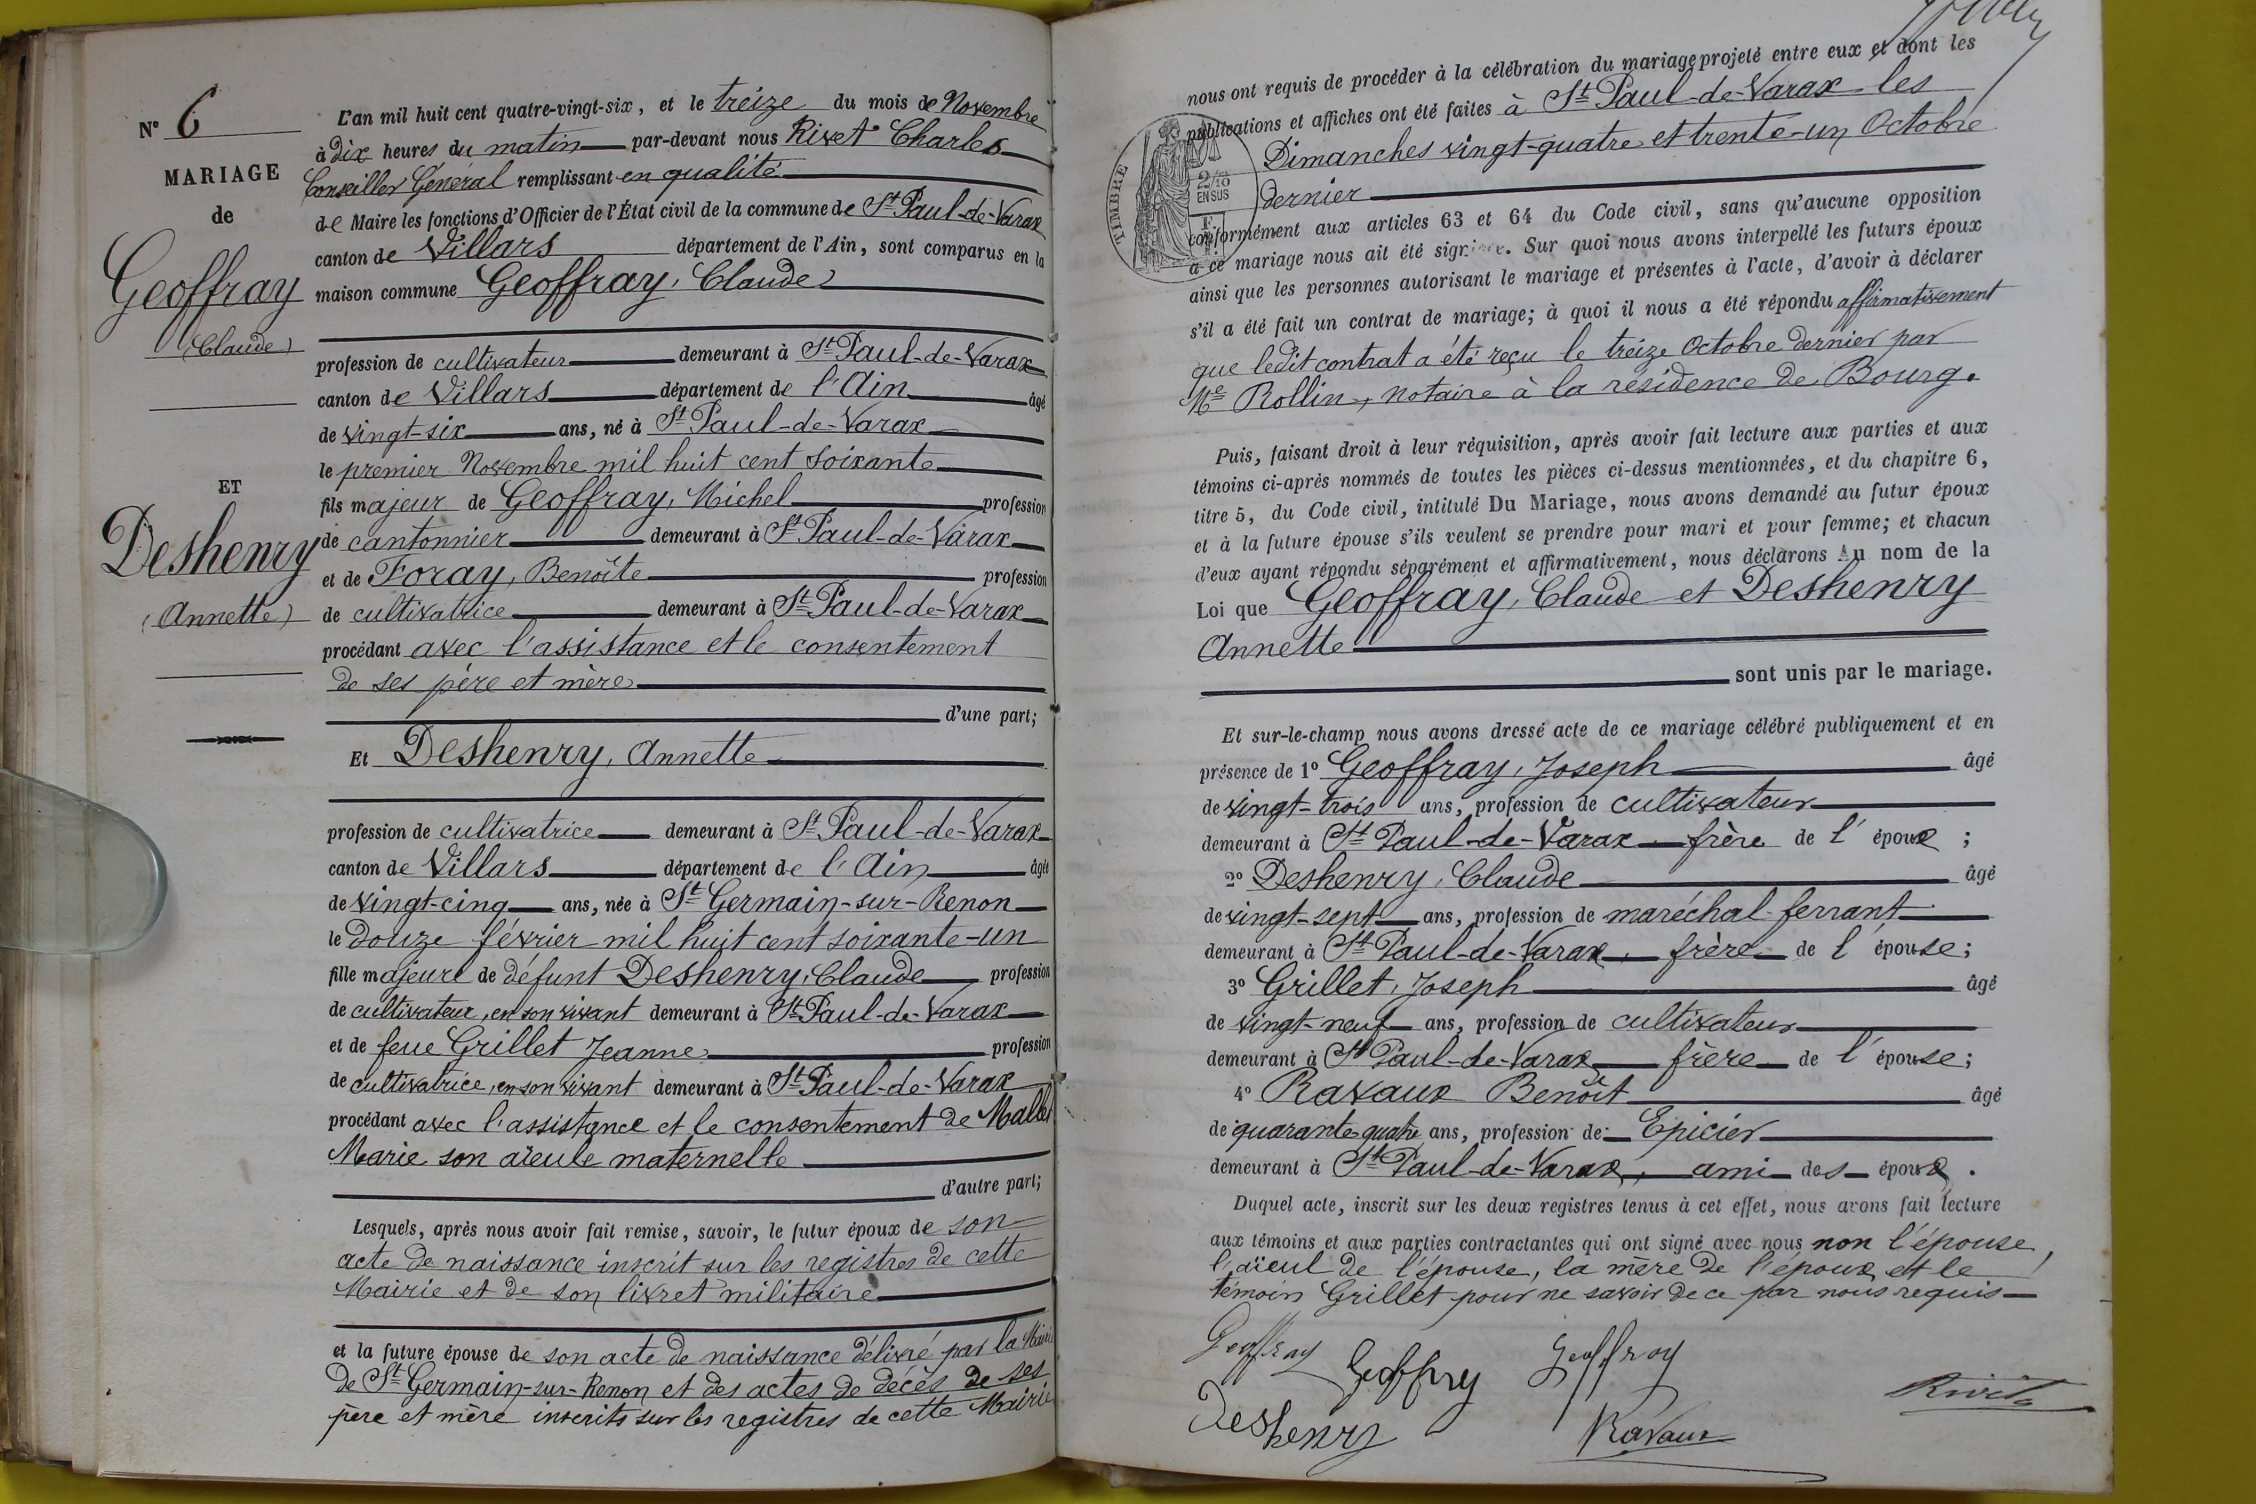 N° 6
MARIAGE
de
Geoffray
(Claude)
ET
Deshenry
(Annette)
L'an mil huit cent quatre-vingt-six, et le treize du mois de Novembre
à dix heures du matin par-devant nous Rivet Charles
Conseiller Général remplissant en qualité
de Maire les fonctions d'Officier de l'État civil de la commune de St Paul-de-Varax
canton de Villars département de l'Ain, sont comparus en la
maison commune Geoffray, Claude
profession de cultivateur demeurant à St Paul-de-Varax
canton de Villars département de l'Ain âgé
de vingt-six ans, né à St Paul-de-Varax
le premier Novembre mil huit cent soixante
fils majeur de Geoffray, Michel profession
de cantonnier demeurant à St Paul-de-Varax
et de Foray, Benoîte profession
de cultivatrice demeurant à St Paul-de-Varax
procédant avec l'assistance et le consentement
de ses père et mère
d'une part;
Et Deshenry, Annette
profession de cultivatrice demeurant à St Paul-de-Varax
canton de Villars département de l'Ain âgée
de vingt-cinq ans, née à St Germain-sur-Renon
le douze février mil huit cent soixante-un
fille majeure de défunt Deshenry, Claude profession
de cultivateur, en son vivant demeurant à St Paul-de-Varax
et de feue Grillet Jeanne profession
de cultivatrice, en son vivant demeurant à St Paul-de-Varax
procédant avec l'assistance et le consentement de Mallet
Marie son aïeule maternelle
d'autre part;
Lesquels, après nous avoir fait remise, savoir, le futur époux de son
acte de naissance inscrit sur les registres de cette
Mairie et de son livret militaire
et la future épouse de son acte de naissance délivré par la Mairie
de St Germain-sur-Renon et des actes de décès de ses
père et mère inscrits sur les registres de cette Mairie
nous ont requis de procéder à la célébration du mariage projeté entre eux et dont les
publications et affiches ont été faites à St Paul-de-Varax les
Dimanches vingt-quatre et trente-un Octobre
dernier
TIMBRE
2/10
EN SUS
conformément aux articles 63 et 64 du Code civil, sans qu'aucune opposition
à ce mariage nous ait été signifiée. Sur quoi nous avons interpellé les futurs époux
ainsi que les personnes autorisant le mariage et présentes à l'acte, d'avoir à déclarer
s'il a été fait un contrat de mariage; à quoi il nous a été répondu affirmativement
que ledit contrat a été reçu le treize Octobre dernier par
Me Rollin, notaire à la résidence de Bourg.
Puis, faisant droit à leur réquisition, après avoir fait lecture aux parties et aux
témoins ci-après nommés de toutes les pièces ci-dessus mentionnées, et du chapitre 6,
titre 5, du Code civil, intitulé Du Mariage, nous avons demandé au futur époux
et à la future épouse s'ils veulent se prendre pour mari et pour femme; et chacun
d'eux ayant répondu séparément et affirmativement, nous déclarons Au nom de la
Loi que Geoffray, Claude et Deshenry
Annette
sont unis par le mariage.
Et sur-le-champ nous avons dressé acte de ce mariage célébré publiquement et en
présence de 1° Geoffray, Joseph âgé
de vingt-trois ans, profession de cultivateur
demeurant à St Paul-de-Varax frère de l'époux;
2° Deshenry, Claude âgé
de vingt-sept ans, profession de maréchal-ferrant
demeurant à St Paul-de-Varax, frère de l'épouse;
3° Grillet, Joseph âgé
de vingt-neuf ans, profession de cultivateur
demeurant à St Paul-de-Varax frère de l'épouse;
4° Ravaux Benoît âgé
de quarante-quatre ans, profession de Epicier
demeurant à St Paul-de-Varax, ami des époux.
Duquel acte, inscrit sur les deux registres tenus à cet effet, nous avons fait lecture
aux témoins et aux parties contractantes qui ont signé avec nous non l'épouse,
l'aïeul de l'épouse, la mère de l'époux, et le
témoin Grillet pour ne savoir de ce par nous requis
Geoffray Geoffray Geoffroy
Rivet
Deshenry Ravaux